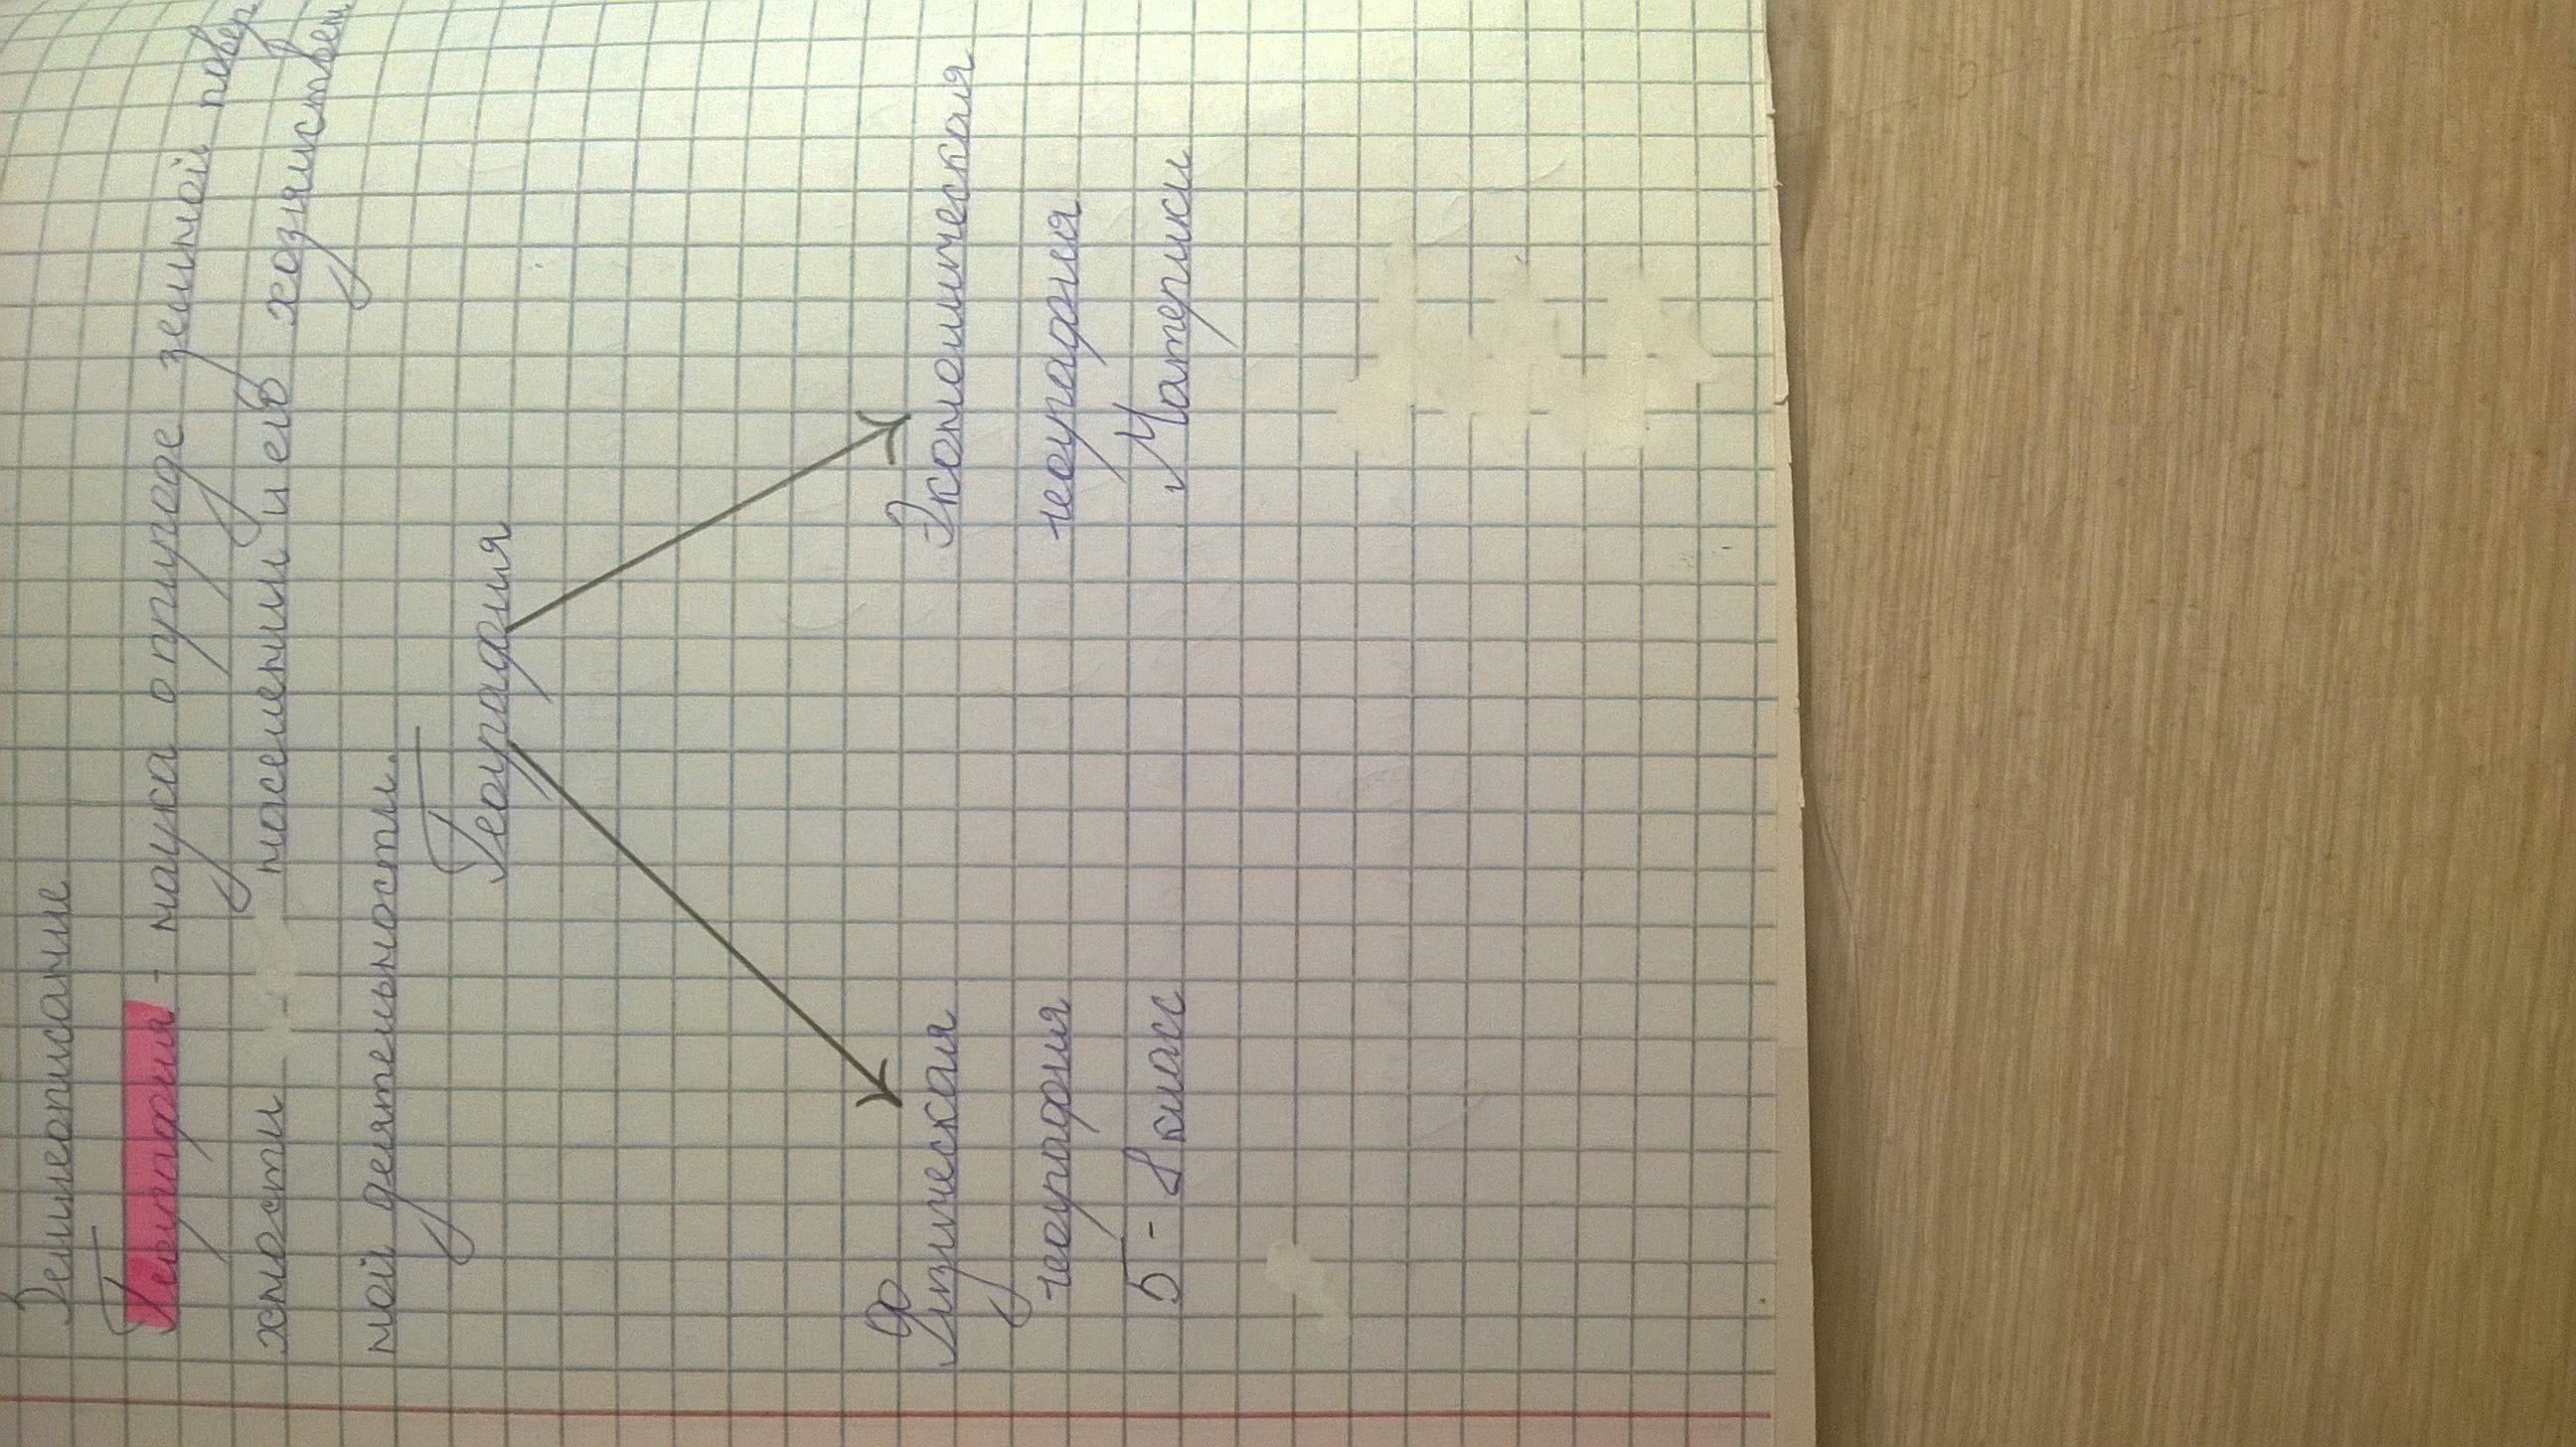 Землеописание
География - наука о природе земной повер
хности населении и его хозяйствен
ной деятельности.
География
Физическая Экономическая
география география
5 - 8 класс Материки